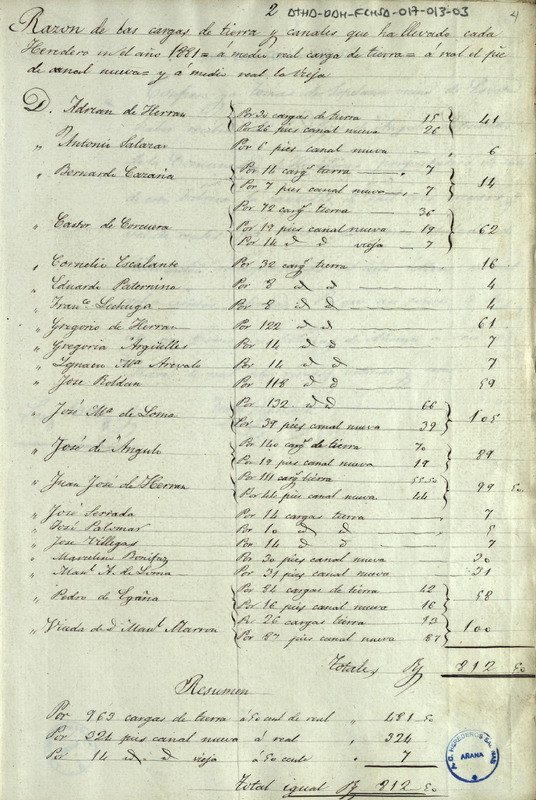 2 DTHA-DAH-FCHSA-017-013-03
Razon de las cargas de tierra y canales que ha llevado cada
Heredero en el año 1881 = á medio real carga de tierra = á real el pie
de canal nueva = y a medio real la vieja
D. Adrian de Herran Por 30 cargas de tierra 15
Por 26 pies canal nueva 26 41
" Antonio Salazar Por 6 pies canal nueva 6
" Bernardo Por 14 carg.s tierra 7
Por 7 pies canal nueva 7 14
Por 72 carg.s tierra 36
" Castor de Corcuera Por 19 pies canal nueva 19 62
Por 14 d d vieja 7
" Cornelio Escalante Por 32 carg.s tierra 16
" Eduardo Paternina Por 8 d d 4
" Fran.co Lechuga Por 8 d d 4
" Gregorio de Herran Por 122 d d 61
" Gregoria Argüelles Por 14 d d 7
" Ignacio M.a Arevalo Por 14 d d 7
" Jose Roldan Por 118 d d 59
" José M.a de Loma Por 132 d d 66
Por 39 pies canal nueva 39 105
" José de Angulo Por 140 carg.s de tierra 70
Por 19 pies canal nueva 19 89
" Juan José de Herran Por 111 carg.s tierra 55.50
Por 44 pies canal nueva 44 99 50
" José Por 14 cargas tierra 7
" José Palomar Por 10 d d 5
" Jose Villegas Por 14 d d 7
" Marcelino Bonifaz Por 30 pies canal nueva 30
" Man.l A. de Loma Por 31 pies canal nueva 31
" Pedro de Egaña Por 84 cargas de tierra 42
Por 16 pies canal nueva 16 58
" Viuda de D.n Man.l Marron Por 26 cargas tierra 13
Por 87 pies canal nueva 87 100
Totales 812 50
Resumen
Por 963 cargas de tierra á 50 cent de real " 481 50
Por 324 pies canal nueva á real " 324
Por 14 d. d. vieja á 50 cents " 7
Total igual 812 50
AÑANA